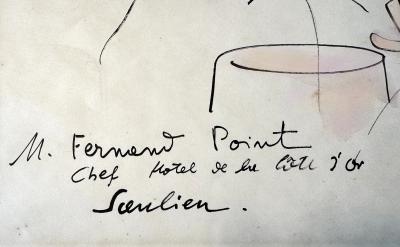 M. Fernand Point
Chef Hotel de la Côte d'Or
Saulieu.